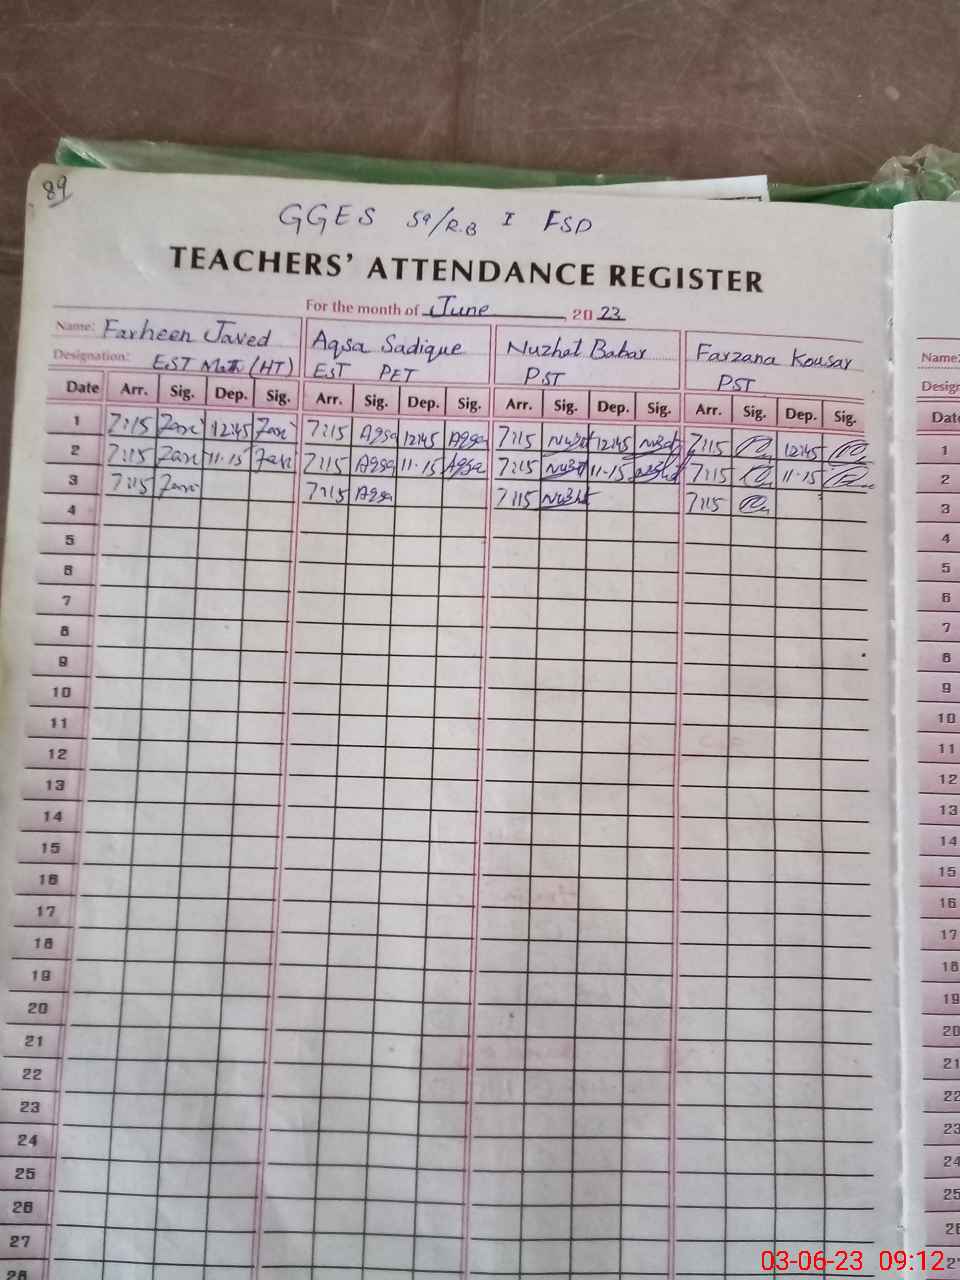 89
GGES 59/R.B I FSD
TEACHERS' ATTENDANCE REGISTER
For the month of June, 2023
Name: Farheen Javed Aqsa Sadique Nuzhat Babar Farzana Kousar Name:
Designation: EST Math (HT) EST PET PST PST Design
Date Arr. Sig. Dep. Sig. Arr. Sig. Dep. Sig. Arr. Sig. Dep. Sig. Arr. Sig. Dep. Sig. Dat
1 7:15 12:45 7:15 Aqsa 12:45 Aqsa 7:15 12:45 7:15 12:45 1
2 7:15 11.15 7:15 Aqsa 11.15 Aqsa 7:15 11.15 7:15 11.15 2
3 7:15 7:15 Aqsa 7:15 7:15 3
4 4
5 5
6 6
7 7
8 8
9 9
10 10
11 11
12 12
13 13
14 14
15 15
16 16
17 17
18 18
19 19
20 20
21 21
22 22
23 23
24 24
25 25
26
27
28
03-06-23 09:12